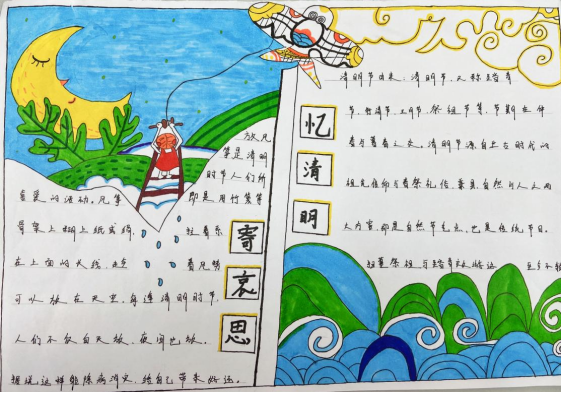 放风
筝是清明
时节人们所
喜爱的活动。风筝
即是用竹篾等
骨架上糊上纸或绢，
拉着系
在上面的长线
着风势
可以放在天空，每逢清明时节，
人们不仅白天放，夜间也放。
据说这样能除病消灾，给自己带来好运。
寄
哀
思
清明节由来：清明节，又称踏青
节、行清节、三月节、祭祖节等，节期在仲
春与暮春之交。清明节源自上古时代的
祖先信仰与春祭礼俗，兼具自然与人文两
大内涵，即是自然节气点，也是传统节日。
扫墓祭祖与踏青郊游
忆
清
明